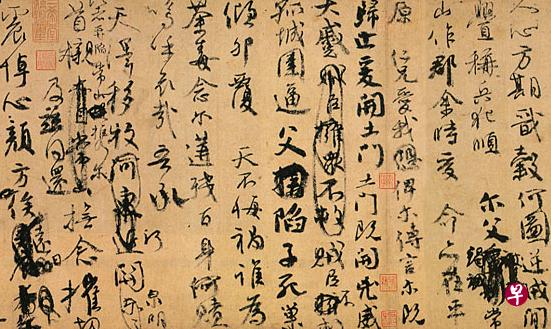 人心方期戩穀何圖逆賊間
釁稱兵犯順 尔父竭誠常
山作郡余時受 命亦在平
原 仁兄愛我俾尔傳言尔既
歸止爰開土門土門既開凶威
大蹙賊臣擁衆不救賊臣不
孤城圍逼父陷子死巢
傾卵覆 天不悔禍誰為
荼毒念尔遘殘百身何贖
嗚呼哀哉 吾承
天澤移牧河關 泉明
比者再陷常山携尔
首櫬 及兹同還 撫念摧切
震悼心顏方俟遠日
早